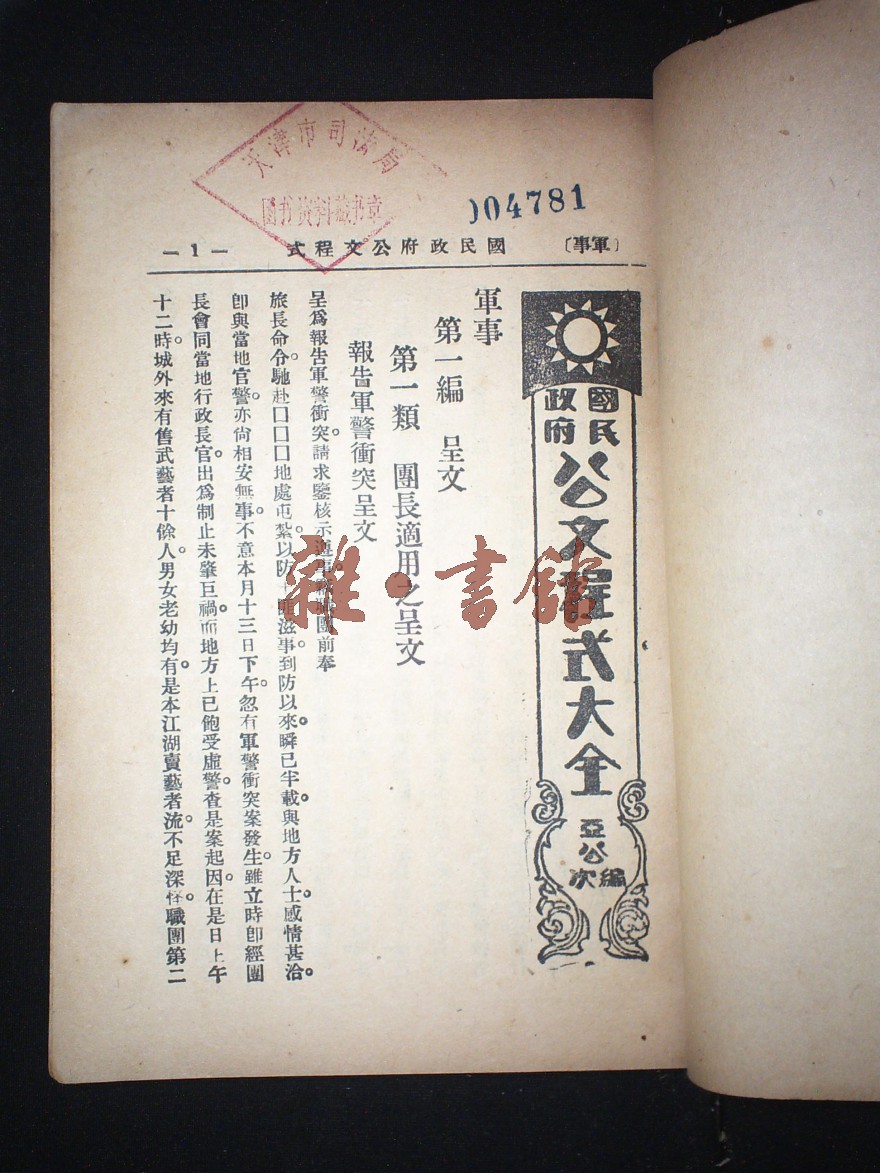 天津市司法局
圖书資料藏书章
004781
〔軍事〕
國民政府公文程式
—1—
國民政府
公文程式大全
亞公編次
軍事
第一編 呈文
第一類 團長適用之呈文
報告軍警衝突呈文
呈爲報告軍警衝突。請求鑒核示遵事。職團前奉
旅長命令。馳赴口口口地處屯紮。以防土匪滋事。到防以來。瞬已半載。與地方人士。感情甚洽。
卽與當地官警。亦尙相安無事。不意本月十三日下午。忽有軍警衝突案發生。雖立時卽經團
長會同當地行政長官。出爲制止。未肇巨禍。而地方上已飽受虛警。查是案起因。在是日上午
十二時。城外來有售武藝者十餘人。男女老幼均有。是本江湖賣藝者流。不足深怪。職團第二
雜·書館